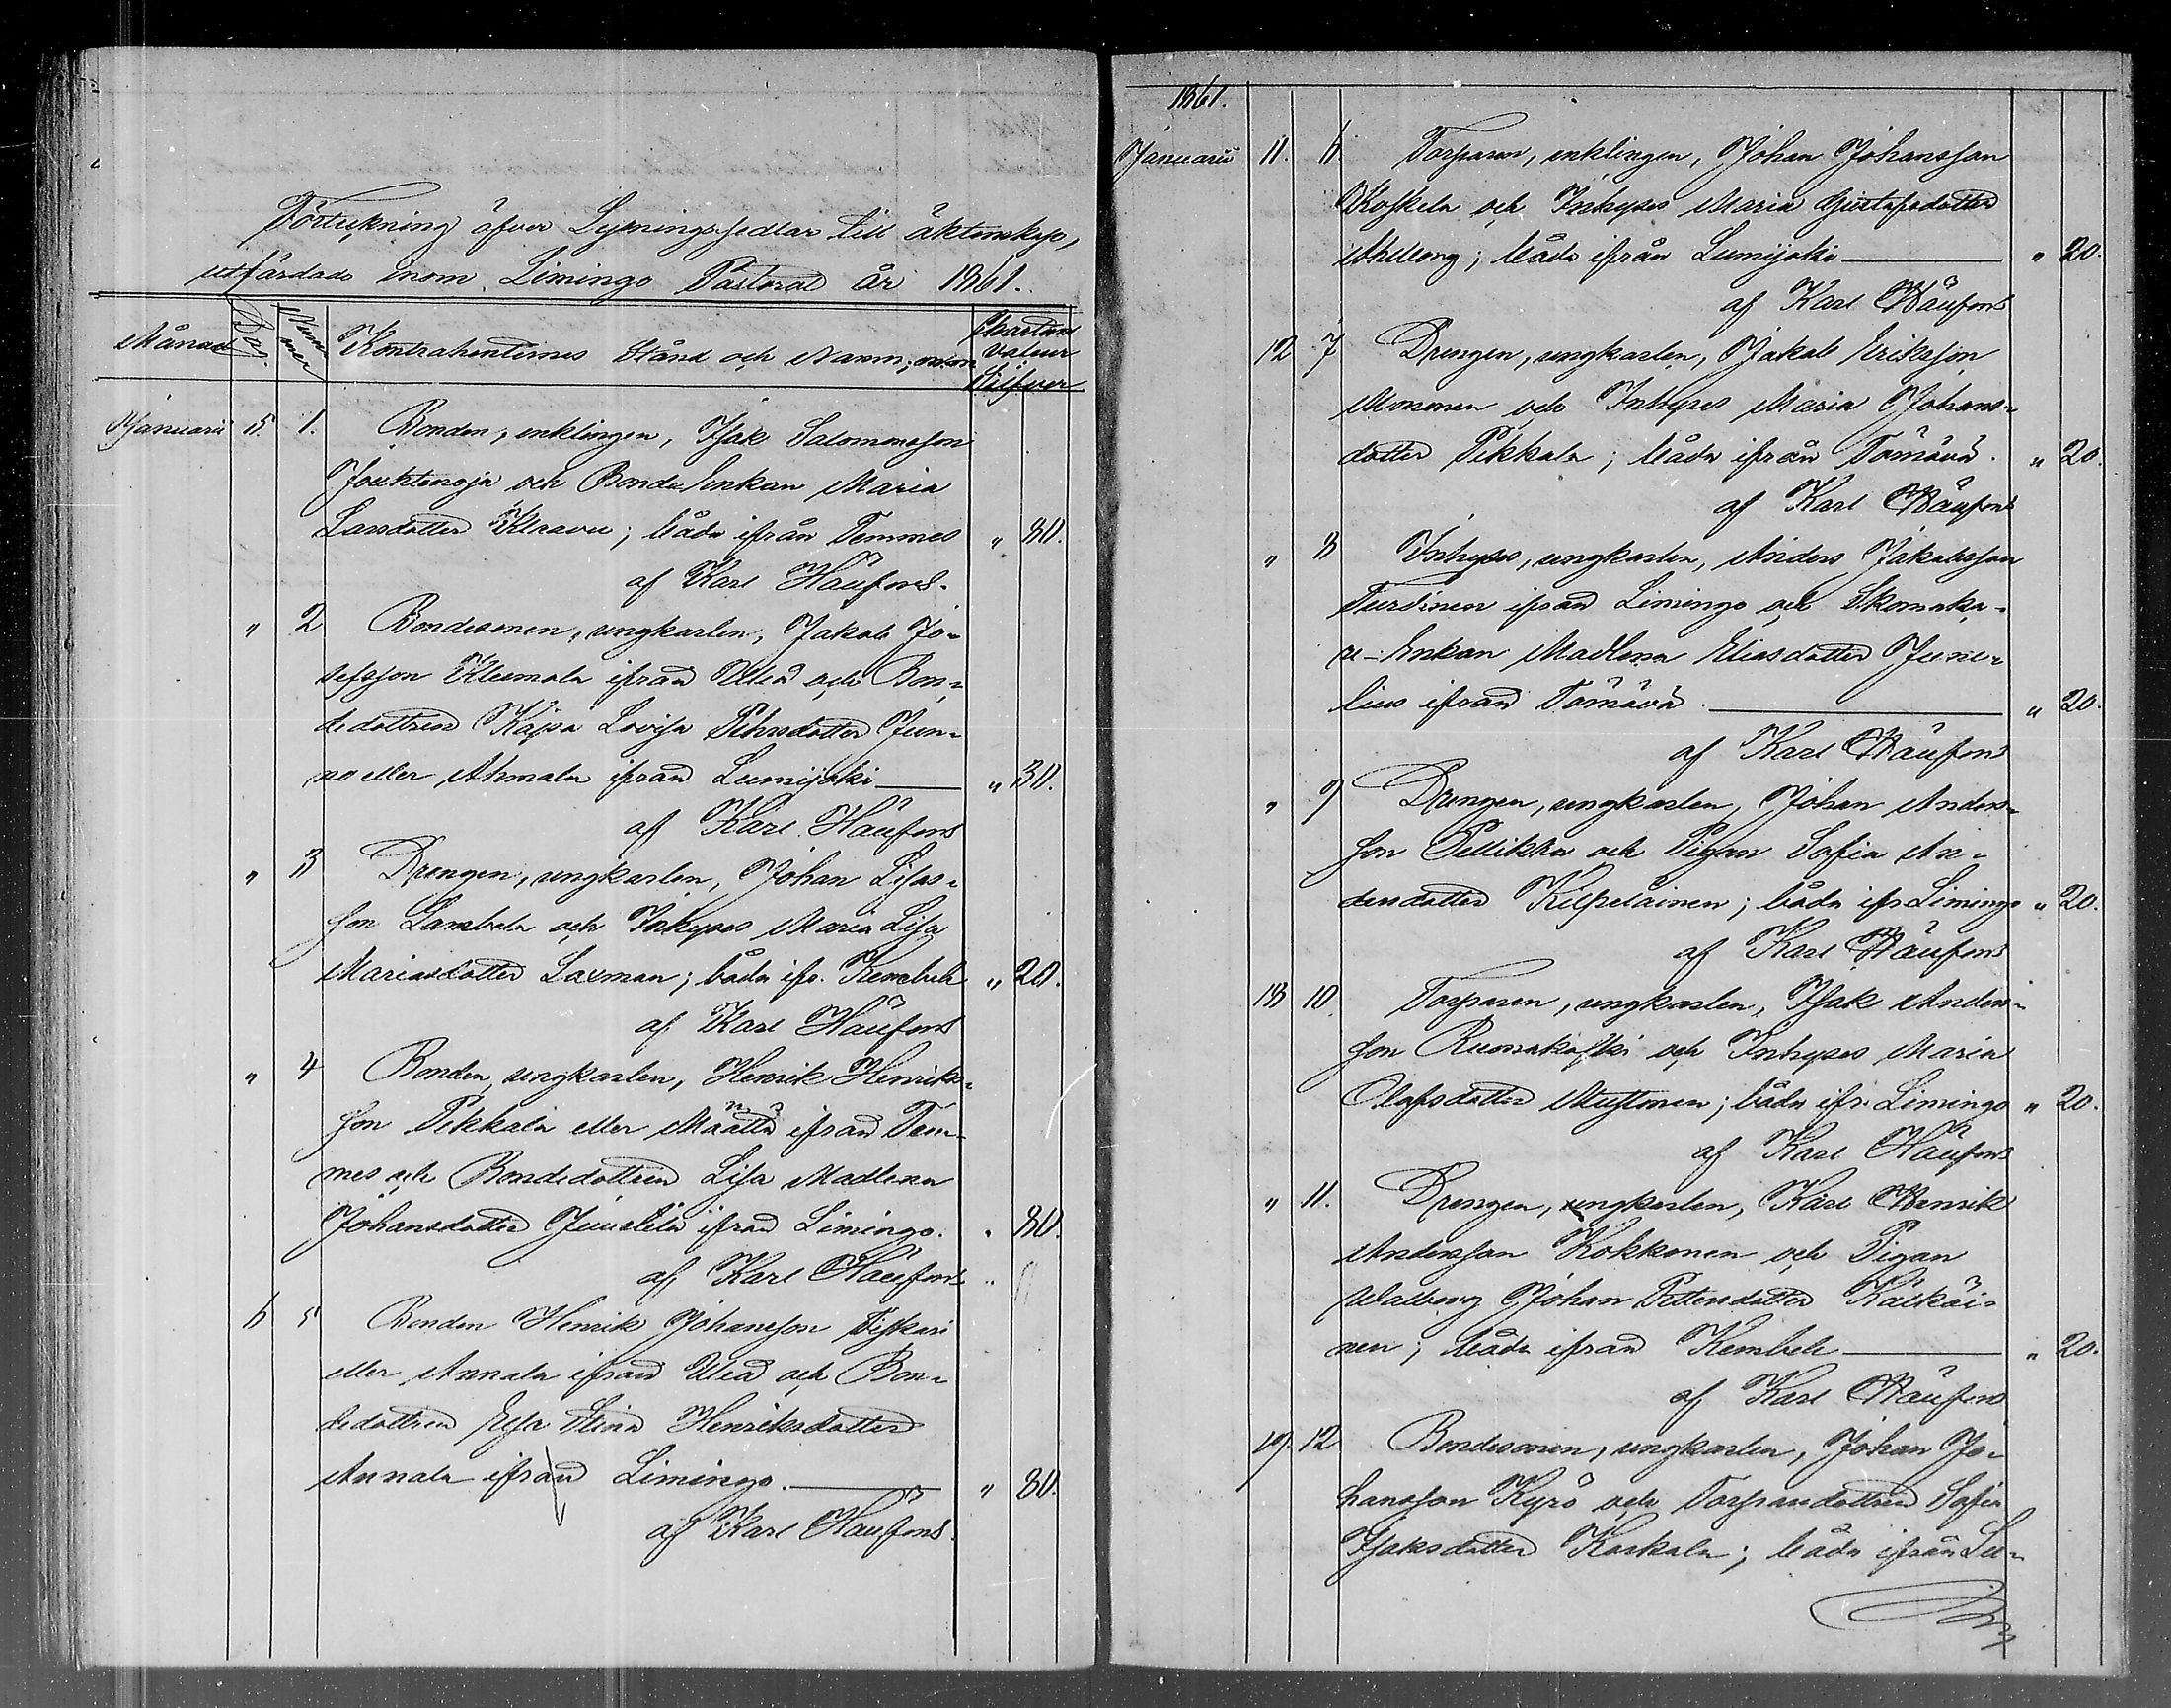 Förteckning öfver Lysningssedlar till äktenskap,
utfärdade inom Limingo Pastorat år 1861.
Månad Dag. Num̄mer Kontrahenternes Stånd och Namn, Chartæ Valeur Silfver
Januari 5. 1. Bonden, enklingen, Isak Salomonsson
Jouktenoja och Bonde Enkan Maria
Larsdotter Klaavu; båda ifrån Temmes " 30.
af Karl Häufors.
" 2 Bondesonen, ungkarlen, Jakob Jo-
sefsson Kleemola ifrån Uleå och Bon-
dedottren Kajsa Lovisa Pehrsdotter Jun-
no eller Ahmala ifrån Lumijoki " 30.
af Karl Häufors
" 3 Drengen, ungkarlen, Johan Lisas-
son Lambela och Inhyses Maria Lisa
Mariasdotter Laxman; båda ifr. Kembele " 20.
af Karl Häufors
" 4 Bonden, ungkarlen, Henrik Henriks-
son Pikkala eller Määttä ifrån Tem-
mes och Bondedottren Lisa Madlena
Johansdotter Juusela ifrån Limingo. " 30.
af Karl Häufors
6 5 Bonden Henrik Johansson Piskari
eller Annala ifrån Uleå och Bon-
dedottren Elsa Stina Henriksdotter
Annala ifrån Limingo. " 30.
af Karl Häufors.
1861.
Januarii 11. 6. Torparen, enklingen, Johan Johansson
Koskela och Inhyses Maria Gustafsdotter
; båda ifrån Lumijoki " 20.
af Karl Häufors
12 7 Drengen, ungkarlen, Jakob Eriksson
Mononen och Inhyses Maria Johans-
dotter Pikkala; båda ifrån Tömävä. " 20.
af Karl Häufors
" 8 Inhyses, ungkarlen, Anders Jakobsson
Turdinen ifrån Limingo och Skomaka-
re-Enkan Madlena Eliasdotter June-
lius ifrån Tömävä. " 20.
af Karl Häufors
" 9 Drengen, ungkarlen, Johan Anders-
son Pellikka och Pigan Sofia An-
dersdotter Kilpeläinen; båda ifr Limingo " 20.
af Karl Häufors
18 10. Torparen, ungkarlen, Isak Anders-
son Ruonakoski och Inhyses Maria
Olofsdotter Mustonen; båda ifr. Limingo " 20.
af Karl Häufors
" 11. Drengen, ungkarlen, Karl Henrik
Andersson Kokkonen och Pigan
Walborg Johan Pettersdotter Kälkäi-
nen; båda ifrån Kembele " 20.
af Karl Häufors
19. 12 Bondesonen, ungkarlen, Johan Jo-
hansson Kyrö och Torparedottren Sofia
Isaksdotter Karkala; båda ifrån Lu-